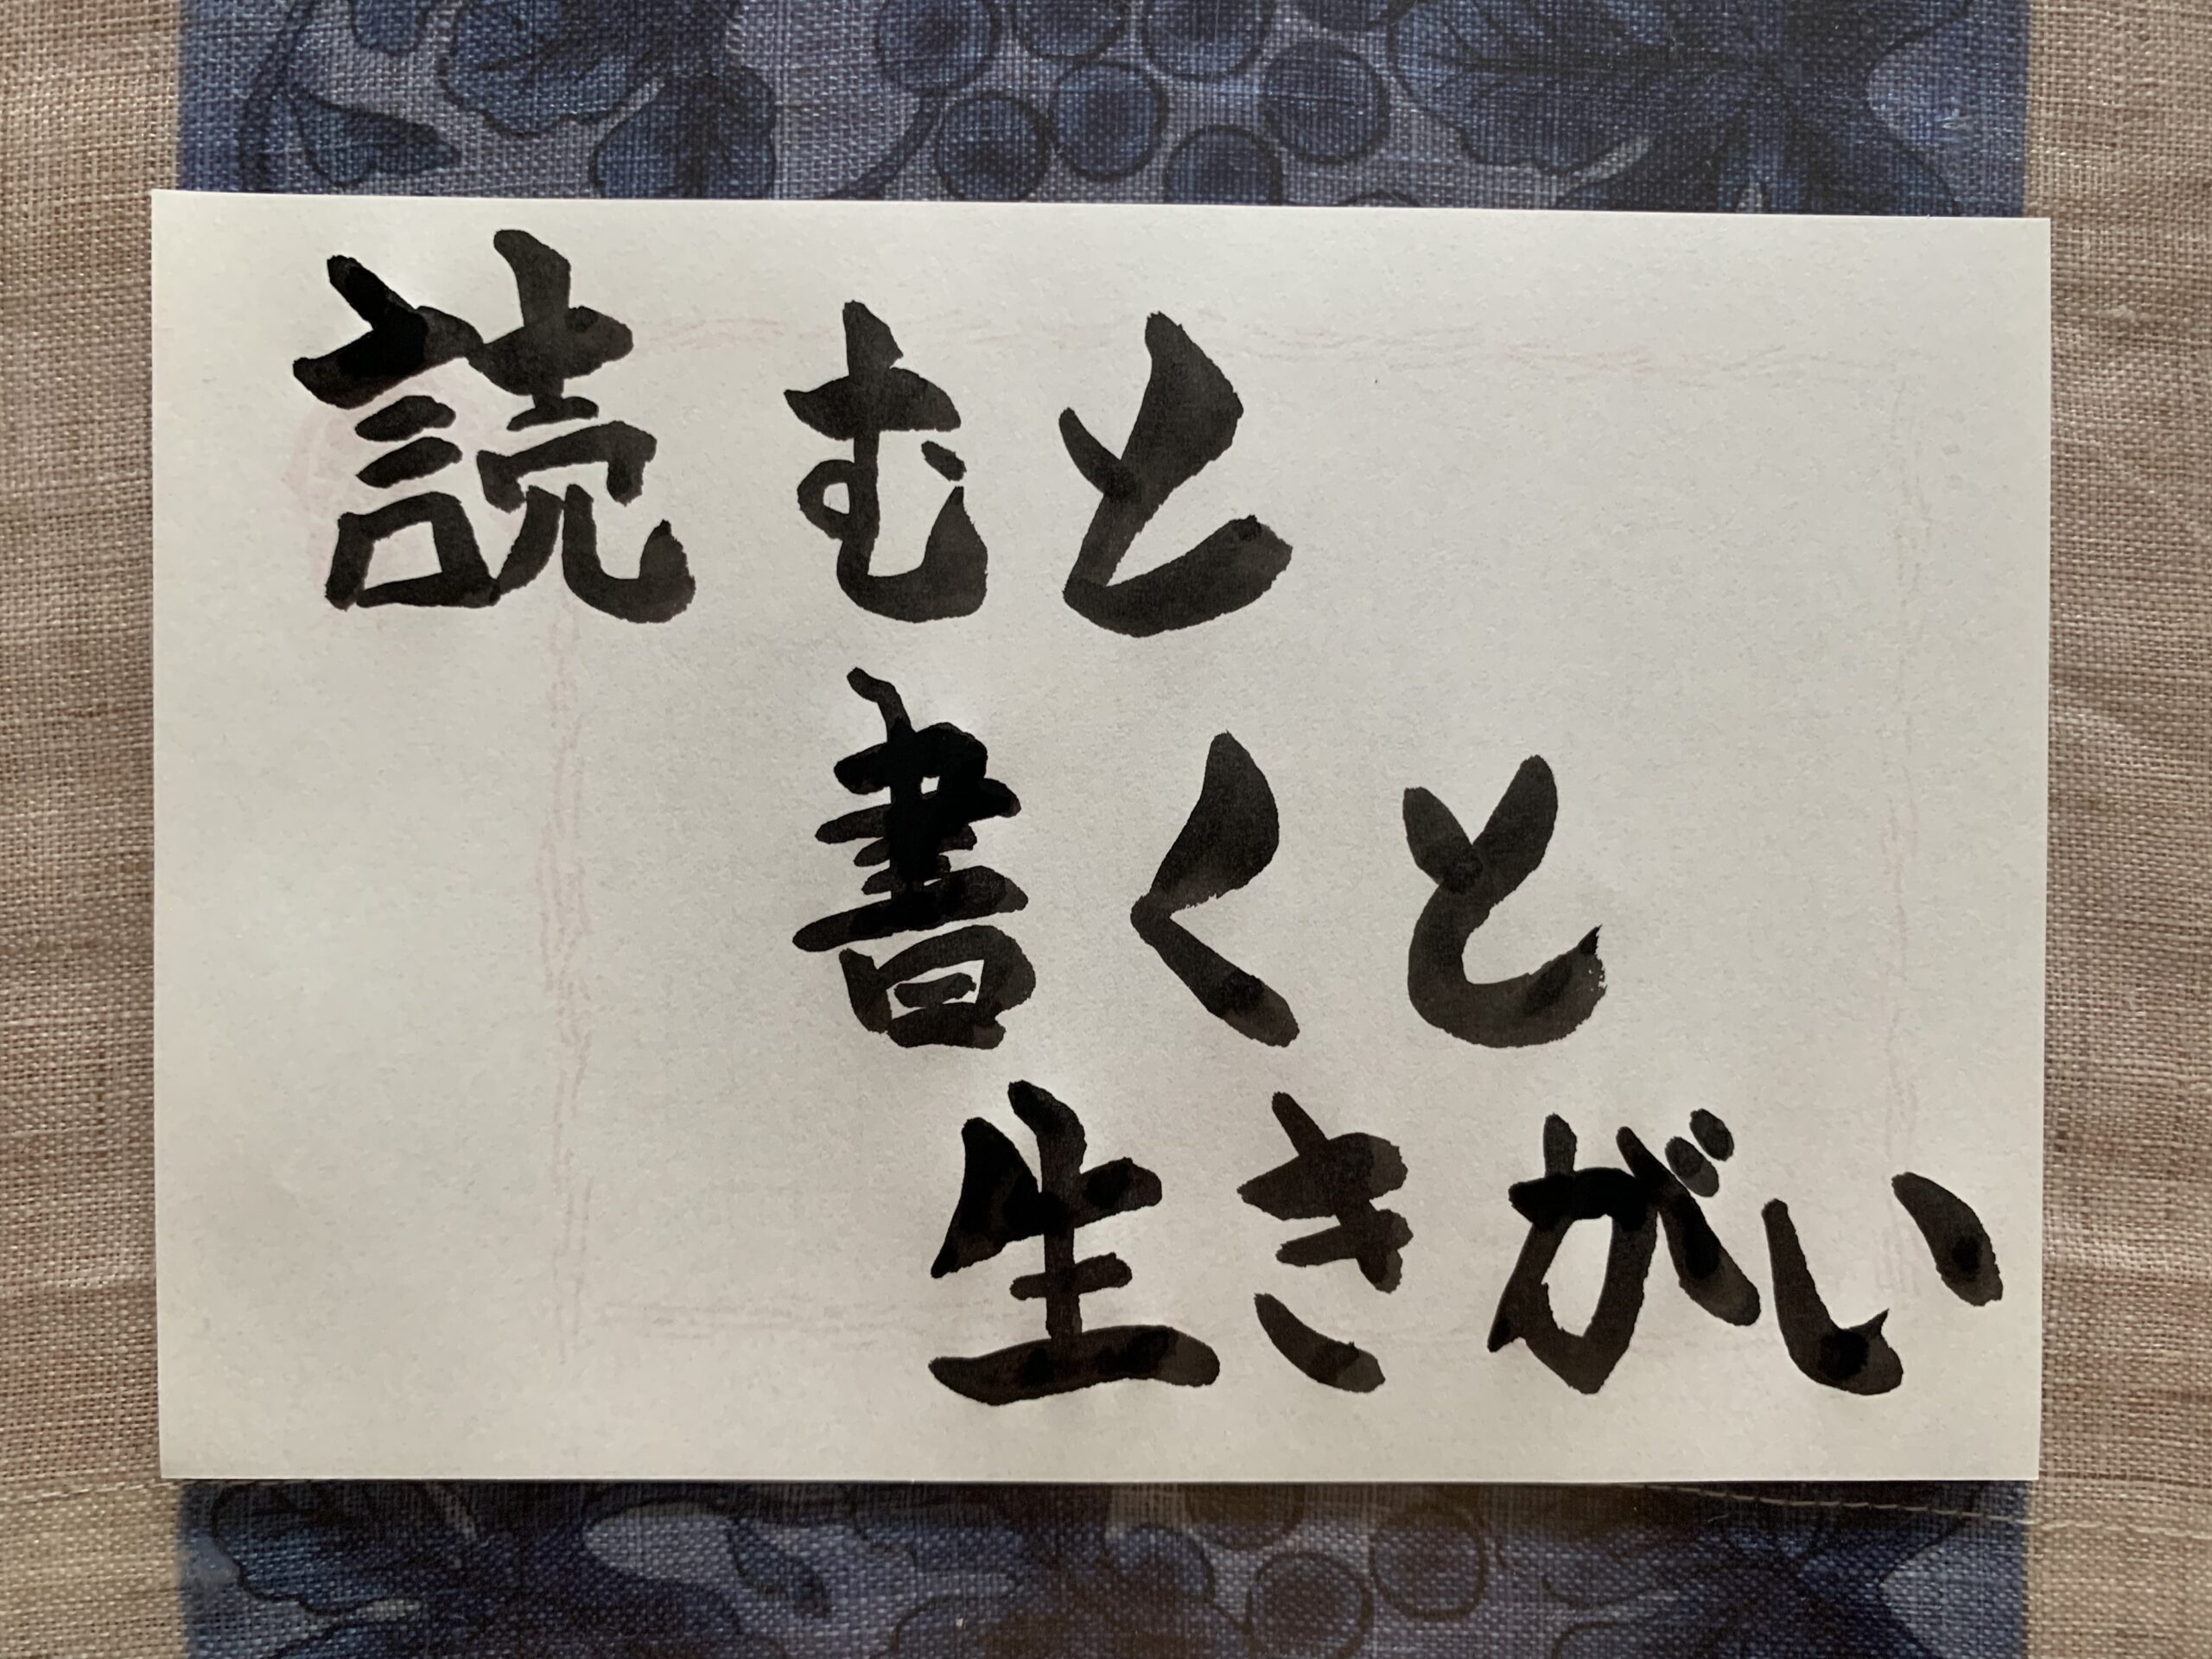 読むと
書くと
生きがい